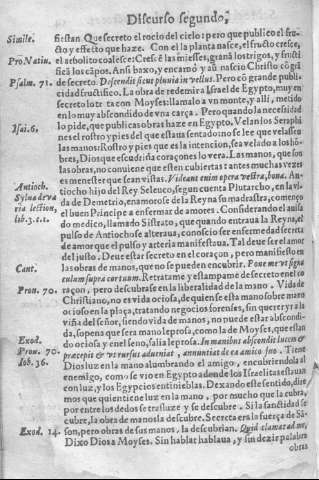 Discurso segundo,
Simile.
fiestan Que secreto el rocio del cielo: pero que publico el fru-
cto y effecto que haze. Con el la planta nasce, el fructo cresce,
Pro Natiu.
el arbolito coalesce: Cresce las miesses, grana los trigos, y fructi
fica los capos. Ansi baxo, y encarnó y aú nascio Christo cō grā
Psalm. 71.
de secreto. Descendit sicut pluuia in vellus. Pero cō grande publi-
cidad fructifico. La obra de redemir a Israel de Egypto, muy en
secreto lo tracon Moyses: llamalo a vn monte, y alli, metido
en lo muy abscondido de vna çarça. Pero quando la necessidad
Isai. 6.
lo pide, que publicas obras haze en Egypto. Velan los Seraphi
nes el rostro y pies del que estaua sentado: no se lee que velassen
las manos: Rostro y pies que es la intencion, sea velado a los hō-
bres, Dios que escudriña coraçones lo vera. Las manos, que son
las obras, no conuiene que esten cubiertas: antes muchas vezes
es menester que sean vistas. Videant enim opera vestra, bona. An-
Antioch.
tiocho hijo del Rey Seleuco, segun cuenta Plutarcho, en la vi-
Sylua de va
da de Demetrio, enamorose de la Reyna su madrastra, començo
ria lection,
el buen Principe a enfermar de amores. Considerando el astu
lib. 3. c. 1.
do medico, llamado Sistrato, que quando entraua la Reyna, el
pulso de Antiocho se alteraua, conoscio ser enfermedad secreta
de amor que el pulso y arteria manifestaua. Tal deue ser el amor
del justo. Deue estar secreto en el coraçon, pero manifiesto en
Cant.
las obras de manos, que no se pueden encubrir. Pone me vt signa
culum supra cor tuum. Retratame y estampame de secreto en el co
Prou. 70.
raçon, pero descubrase en la liberalidad de la mano. Vida de
Christiano, no es vida ociosa, de quien se esta mano sobre mano
ocioso en la plaça, tratando negocios forenses, sin querer yr a la
viña del señor, siendo vida de manos, no puede estar abscondi-
da, so pena que sera mano leprosa, como la de Moyses, que estan
Exod.
do ociosa y en el seno, salia leprosa. In manibus abscondit lucem &
Prou. 70.
præcepit ei vt rursus adueniat, annuntiat de ea amico suo. Tiene
Iob. 36.
Dios luz en la mano alumbrando el amigo, encubriendola al
enemigo, como se vio en Egypto adonde los Israelitas estauan
con luz, y los Egypcios en tinieblas. Dexando este sentido, dire
mos que quien tiene luz en la mano, por mucho que la cubra,
por entre los dedos se trasluze y se descubre. Si la sanctidad se
cubre, la obra de manos la descubre. Secreta era la fuerça de Sā-
Exod. 14.
son, pero obras de sus manos, la descubrian. Quid clamas ad me,
Dixo Dios a Moyses. Sin hablar hablaua, y sin dezir palabra
obras